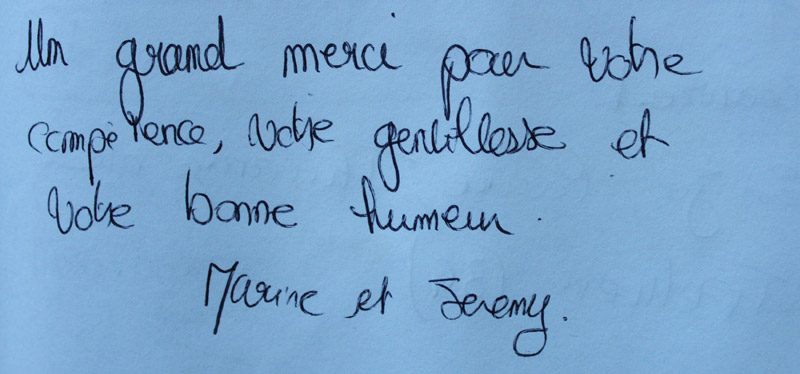 Un grand merci pour votre
compétence, votre gentillesse et
votre bonne humeur.
Marine et Jeremy.